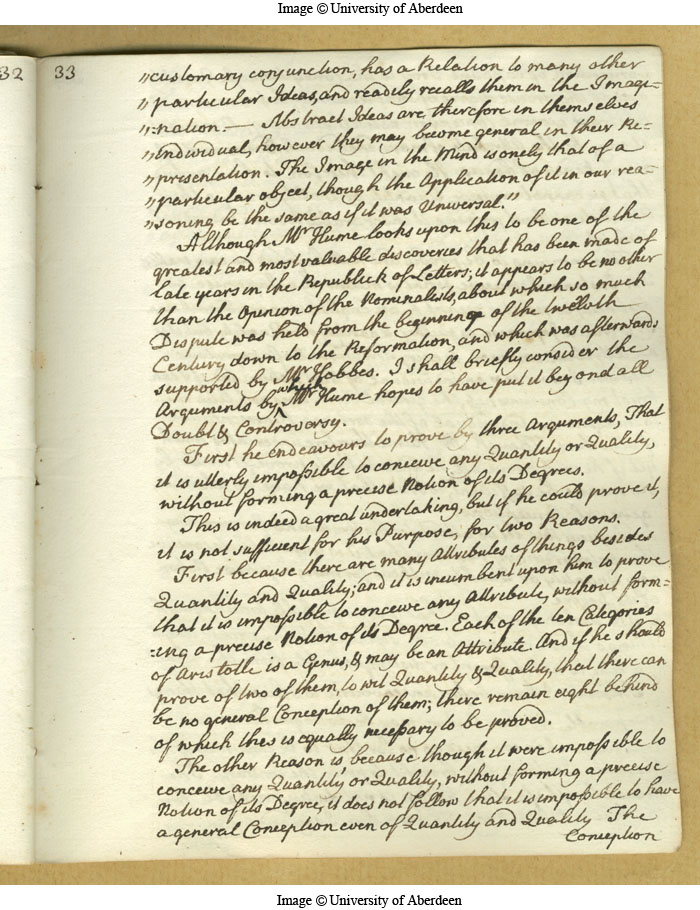 Image © University of Aberdeen
32
33
"customary conjunction, has a Relation to many other
"particular Ideas, and readily recalls them in the Imagi=
"=nation.— Abstract Ideas are therefore in themselves
"individual, however they may become general in their Re=
"presentation. The Image in the Mind is onely that of a
"particular object, though the Application of it in our rea=
"soning be the same as if it was Universal."
Although Mr Hume looks upon this to be one of the
greatest and most valuable discoveries that has been made of
late years in the Republick of Letters; it appears to be no other
than the Opinion of the Nominalists, about which so much
Dispute was held from the beginning of the twelvth
Century down to the Reformation, and which was afterwards
supported by Mr Hobbes. I shall briefly consider the
Arguments by which Mr Hume hopes to have put it beyond all
Doubt & Controversy.
First he endeavours to prove by three Arguments, That
it is utterly impossible to conceive any Quantity or Quality,
without forming a precise Notion of its Degrees.
This is indeed a great undertaking, but if he could prove it,
it is not sufficient for his Purpose, for two Reasons.
First because there are many Attributes of things besides
Quantity and Quality; and it is incumbent upon him to prove
that it is impossible to conceive any Attribute, without form=
=ing a precise Notion of its Degree. Each of the ten Categories
of Aristotle is a Genus, & may be an Attribute. And if he should
prove of two of them, to wit Quantity & Quality, that there can
be no general Conception of them; there remain eight behind
of which this is equally necessary to be proved.
The other Reason is, because though it were impossible to
conceive any Quantity or Quality, without forming a precise
Notion of its Degree, it does not follow that it is impossible to have
a general Conception even of Quantity and Quality The
Conception
Image © University of Aberdeen